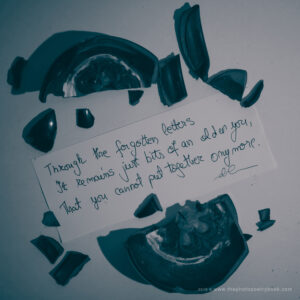 Through the forgotten letters
It remains just bits of an older you,
That you cannot put together anymore.